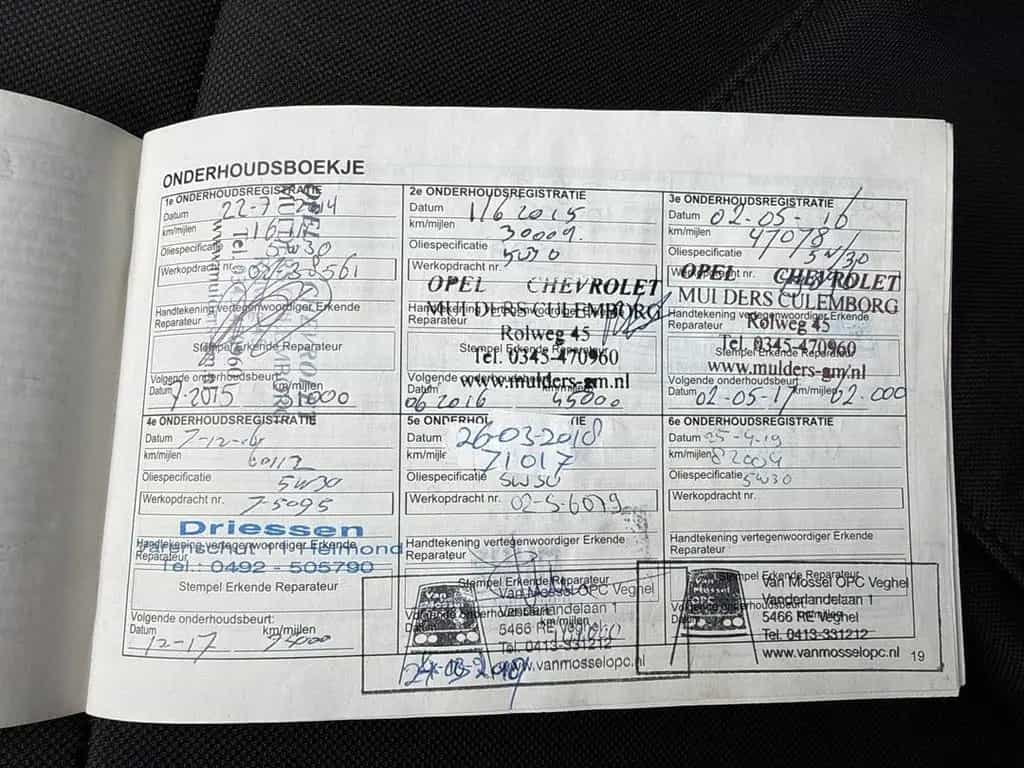 ONDERHOUDSBOEKJE
1e ONDERHOUDSREGISTRATIE
Datum 22-7-2014
km/mijlen
Oliespecificatie 5W30
Werkopdracht nr.
Handtekening vertegenwoordiger Erkende
Reparateur
Stempel Erkende Reparateur
Volgende onderhoudsbeurt:
Datum km/mijlen
7-2015
2e ONDERHOUDSREGISTRATIE
Datum 1/6 2015
km/mijlen
Oliespecificatie 5W30
Werkopdracht nr.
OPEL CHEVROLET
Handtekening vertegenwoordiger Erkende
MULDERS CULEMBORG
Reparateur
Rolweg 45
Stempel Erkende Reparateur
Tel. 0345-470960
Volgende onderhoudsbeurt:
www.mulders-gm.nl
Datum km/mijlen
06 2016 45000
3e ONDERHOUDSREGISTRATIE
Datum 02-05-16
km/mijlen 47078
Oliespecificatie 5W/30
Werkopdracht nr.
OPEL CHEVROLET
MULDERS CULEMBORG
Handtekening vertegenwoordiger Erkende
Reparateur
Rolweg 45
Stempel Erkende Reparateur
Tel. 0345-470960
www.mulders-gm.nl
Volgende onderhoudsbeurt:
Datum 02-05-17 km/mijlen
4e ONDERHOUDSREGISTRATIE
Datum 7-12-16
km/mijlen 60112
Oliespecificatie 5W30
Werkopdracht nr. 7-5095
Driessen
Handtekening vertegenwoordiger Erkende
Reparateur
Helmond
Tel.: 0492 - 505790
Stempel Erkende Reparateur
Volgende onderhoudsbeurt:
Datum 12-17 km/mijlen
5e ONDERHOU
Datum 26-03-2018
km/mijlen 71017
Oliespecificatie 5W30
Werkopdracht nr. 02-5-6079
Handtekening vertegenwoordiger Erkende
Reparateur
Stempel Erkende Reparateur
Van Mossel OPC Veghel
Vanderlandelaan 1
km/mijlen
5466 RE Veghel
Tel. 0413-331212
www.vanmosselopc.nl
6e ONDERHOUDSREGISTRATIE
Datum 25-4-19
km/mijlen 82004
Oliespecificatie 5W30
Werkopdracht nr.
Handtekening vertegenwoordiger Erkende
Reparateur
Stempel Erkende Reparateur
Van Mossel OPC Veghel
Vanderlandelaan 1
5466 RE Veghel
Tel. 0413-331212
www.vanmosselopc.nl
19